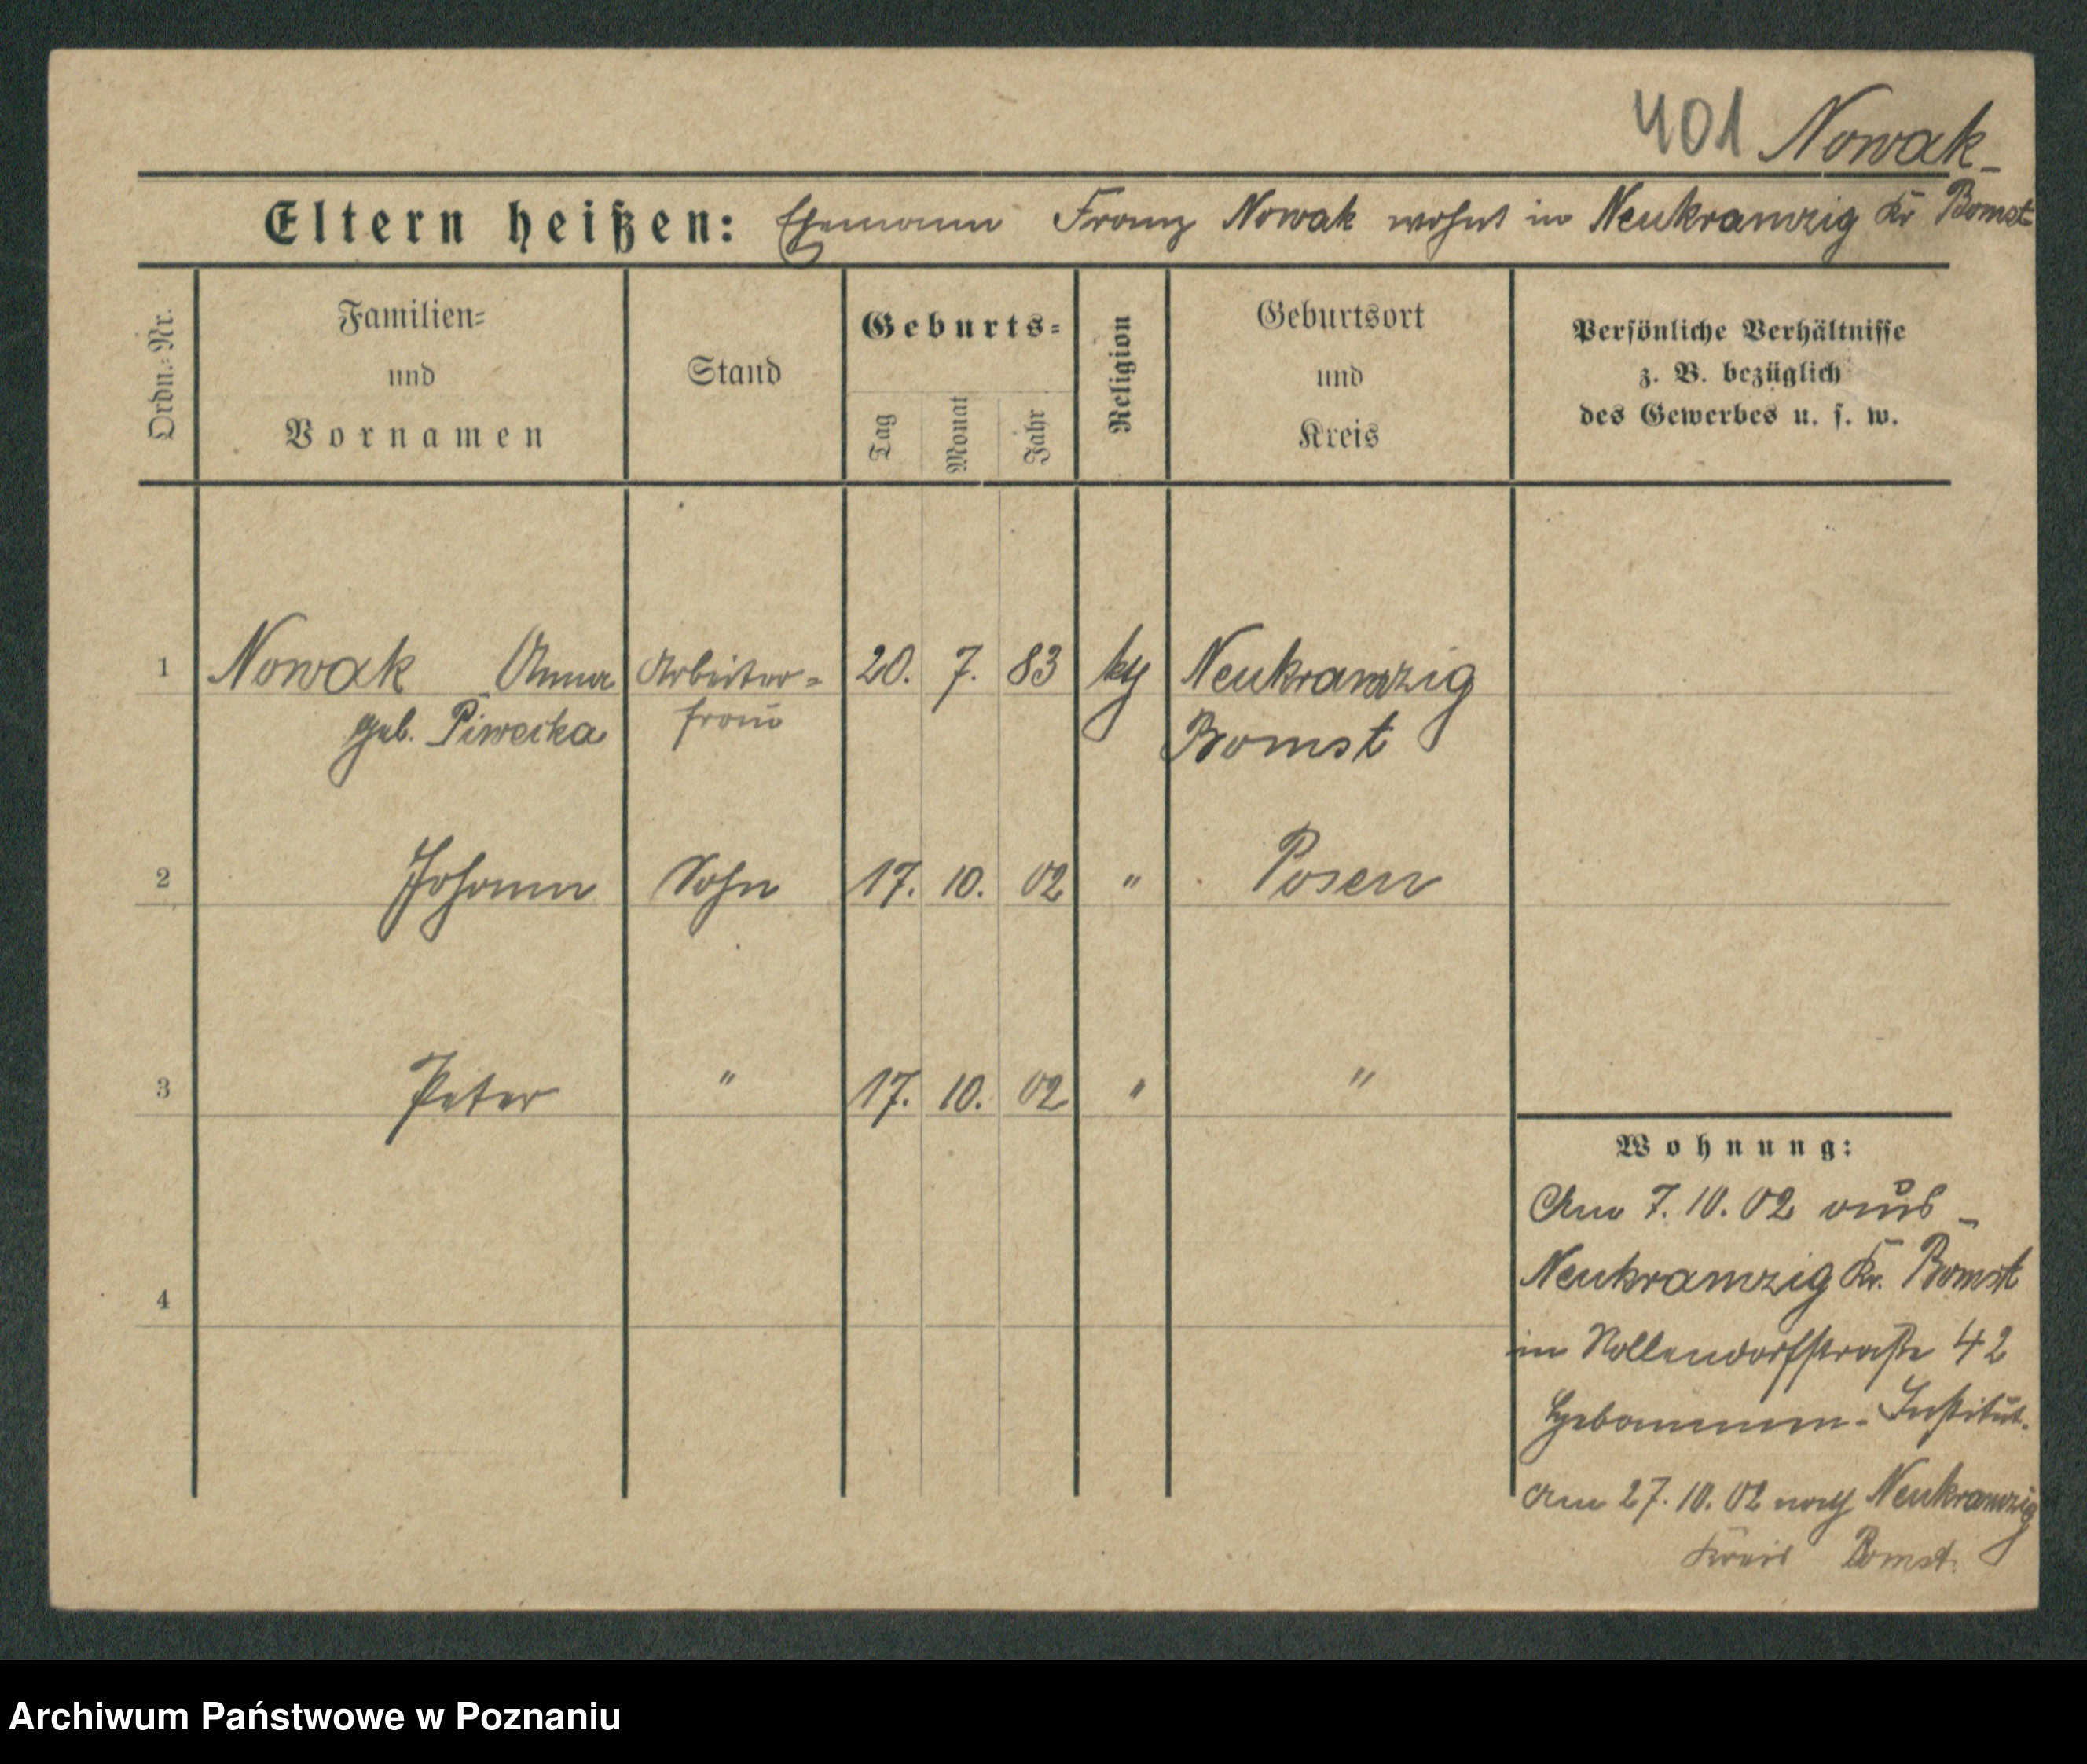 401 Nowak
Eltern heißen: Ehemann Franz Nowak wohnt in Neukramzig Kr Bomst
Ordn.-Nr.
Familien-
und
Vornamen
Stand
Geburts-
Tag
Monat
Jahr
Religion
Geburtsort
und
Kreis
Persönliche Verhältnisse
z. B. bezüglich
des Gewerbes u. s. w.
1 Nowak Anna Arbeiter- 20. 7. 83 Neukramzig
geb. Piwecka frau Bomst
2 Johann Sohn 17. 10. 02 " Posen
3 Peter " 17. 10. 02 " "
4
Wohnung:
Am 7. 10. 02 aus
Neukramzig Kr. Bomst
in Nollendorfstraße 42
Hebammen-Institut.
Am 27. 10. 02 nach Neukramzig
Kreis Bomst.
Archiwum Państwowe w Poznaniu